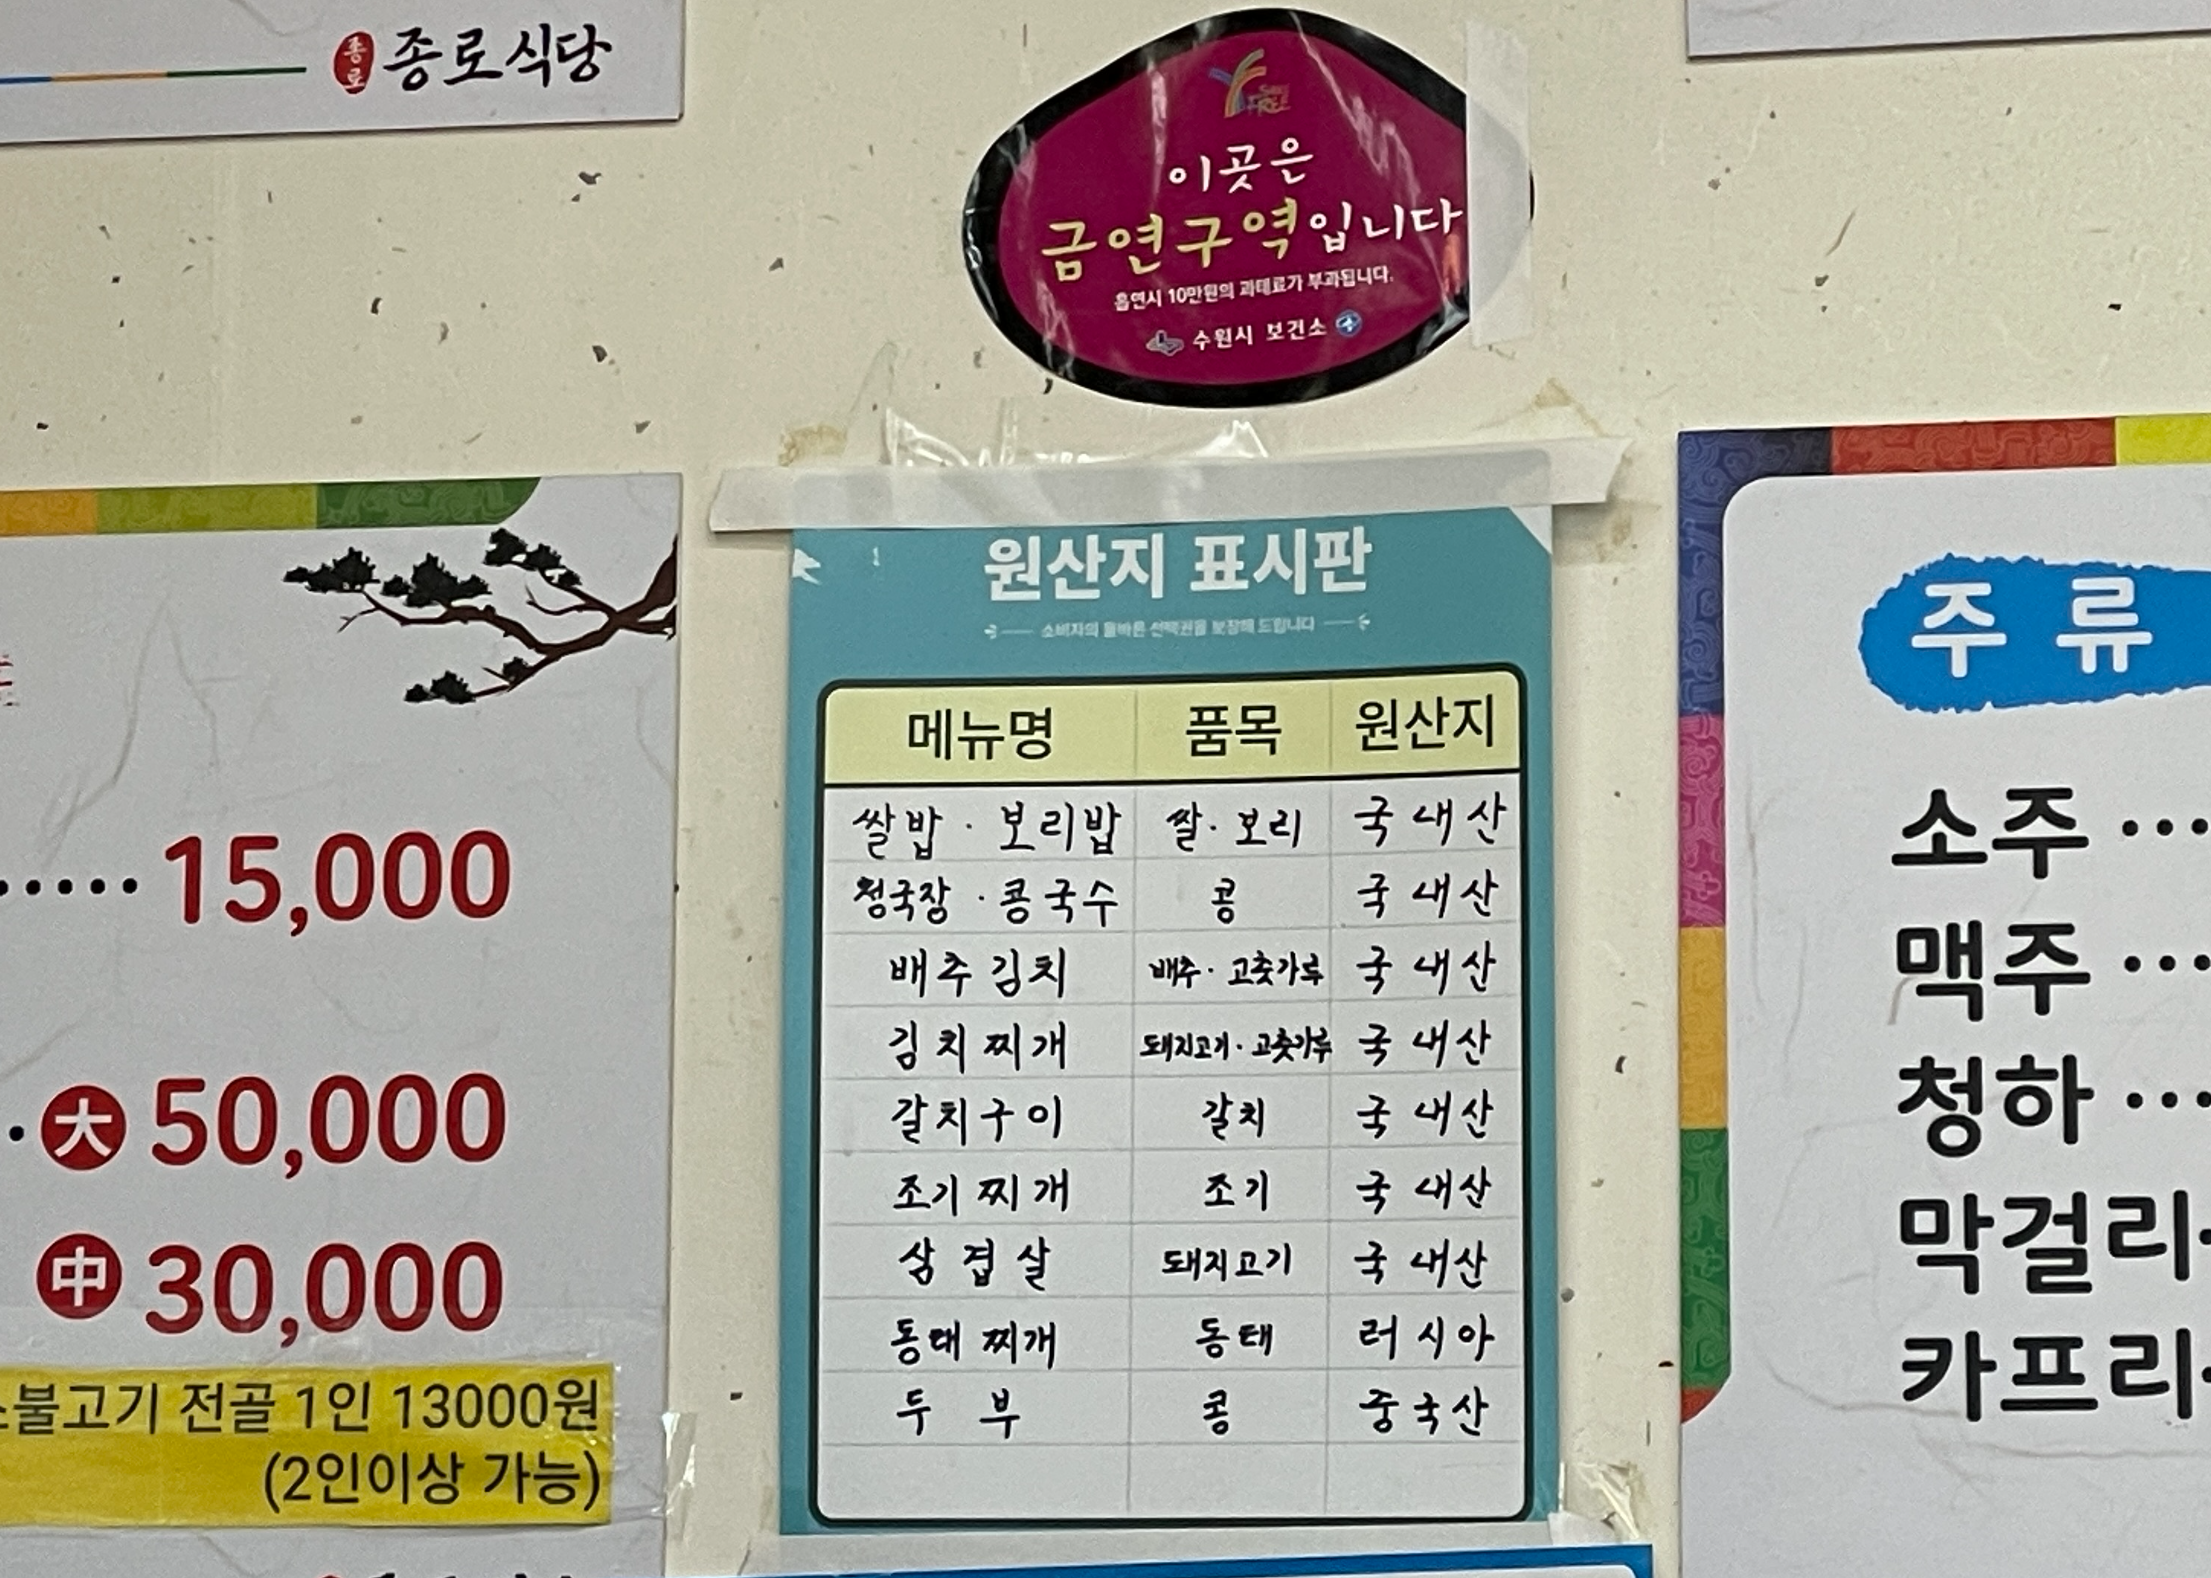 종로 종로식당
Smoke FREE
이곳은
금연구역입니다
흡연시 10만원의 과태료가 부과됩니다.
수원시 보건소
15,000
大 50,000
中 30,000
불고기 전골 1인 13000원
(2인이상 가능)
원산지 표시판
소비자의 올바른 선택권을 보장해 드립니다
메뉴명 품목 원산지
쌀밥 · 보리밥 쌀 · 보리 국내산
청국장 · 콩국수 콩 국내산
배추김치 배추 · 고춧가루 국내산
김치찌개 돼지고기 · 고춧가루 국내산
갈치구이 갈치 국내산
조기찌개 조기 국내산
삼겹살 돼지고기 국내산
동태찌개 동태 러시아
두부 콩 중국산
주류
소주 ···
맥주 ···
청하 ···
막걸리
카프리